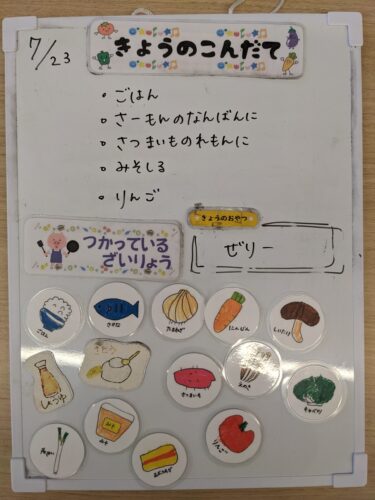 7/23
きょうのこんだて
・ごはん
・さーもんのなんばんに
・さつまいものれもんに
・みそしる
・りんご
きょうのおやつ
ぜりー
つかっている
ざいりょう
ごはん
さかな
たまねぎ
にんじん
しいたけ
しょうゆ
さとう
さつまいも
えのき
キャベツ
ネギ
みそ
りんご